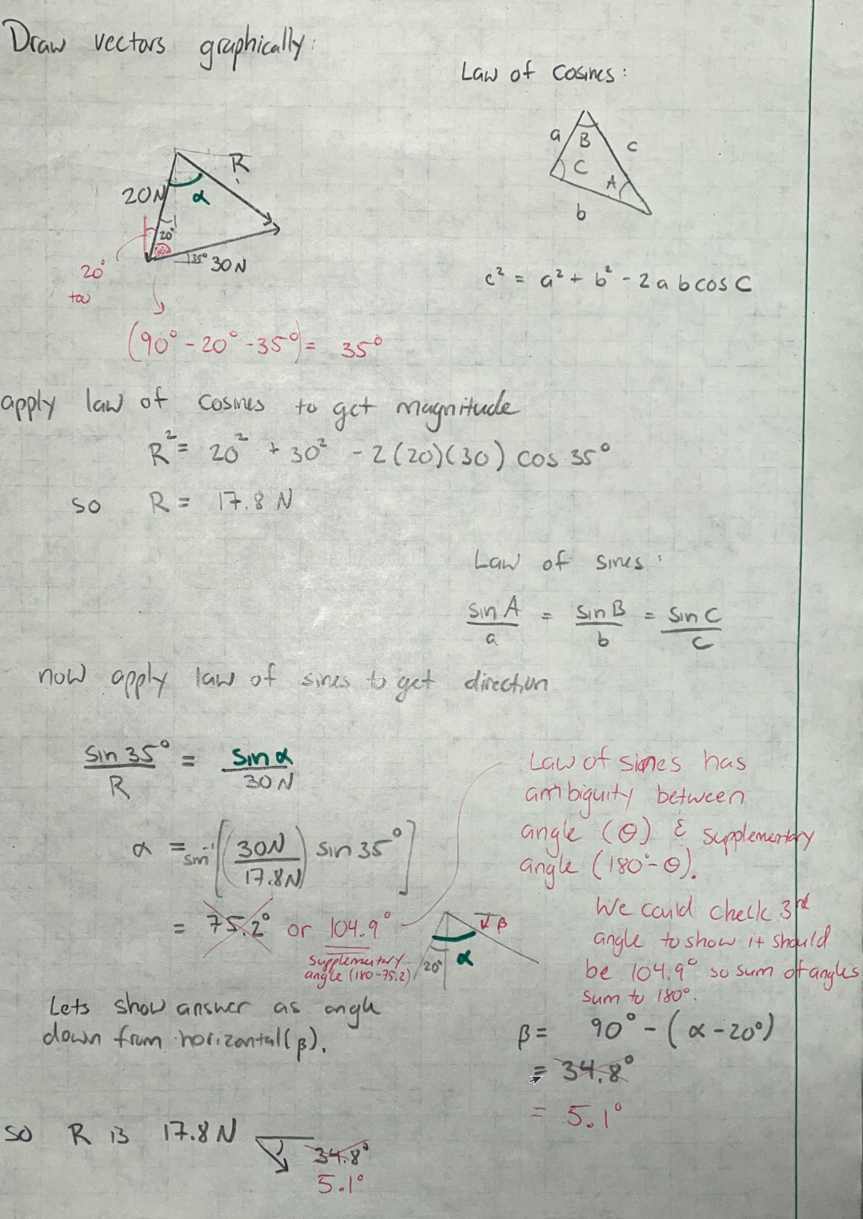 Draw vectors graphically:
Law of cosines:
a B c
C A
b
R
20N α
20°
35° 30N
20°
too
(90° - 20° - 35°) = 35°
c² = a² + b² - 2abcosC
apply law of cosines to get magnitude
R² = 20² + 30² - 2(20)(30) cos 35°
so R = 17.8 N
Law of sines:
sin A / a = sin B / b = sin C / c
now apply law of sines to get direction
sin 35° / R = sin α / 30N
α = sin⁻¹[(30N / 17.8N) sin 35°]
= 75.2° or 104.9°
supplementary
angle (180-75.2)
Law of sines has
ambiguity between
angle (θ) & supplementary
angle (180°-θ).
We could check 3rd
angle to show it should
be 104.9° so sum of angles
sum to 180°.
β
20° α
Lets show answer as angle
down from horizontal (β).
β = 90° - (α - 20°)
= 34.8°
= 5.1°
so R is 17.8 N 34.8°
5.1°